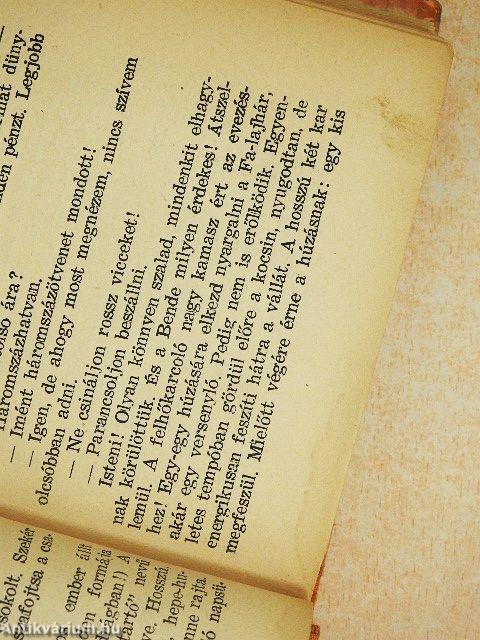 düny-
pénzt. Legjobb
ára?
Háromszázhatvan.
— Imént háromszázötvenet mondott!
— Igen, de ahogy most megnézem, nincs szívem
olcsóbban adni.
— Ne csináljon rossz vicceket!
— Parancsoljon beszállni.
Isteni! Olyan könnyen szalad, mindenkit elhagy-
nak körülöttük. És a Bende milyen érdekes! Átszel-
lemül. A felhőkarcoló nagy kamasz ért az evezés-
hez! Egy-egy húzására elkezd nyargalni a Fa-lajhár,
akár egy versenyló. Pedig nem is erőlködik. Egyen-
letes tempóban gördül előre a kocsin, nyugodtan, de
energikusan feszíti hátra a vállát. A hosszú két kar
megfeszül. Mielőtt végére érne a húzásnak: egy kis
Szekér
a csa-
ember állt
formája
A
nevű
Hosszú,
hepe-hu-
rajta.
napsü-
Antikvárium.hu